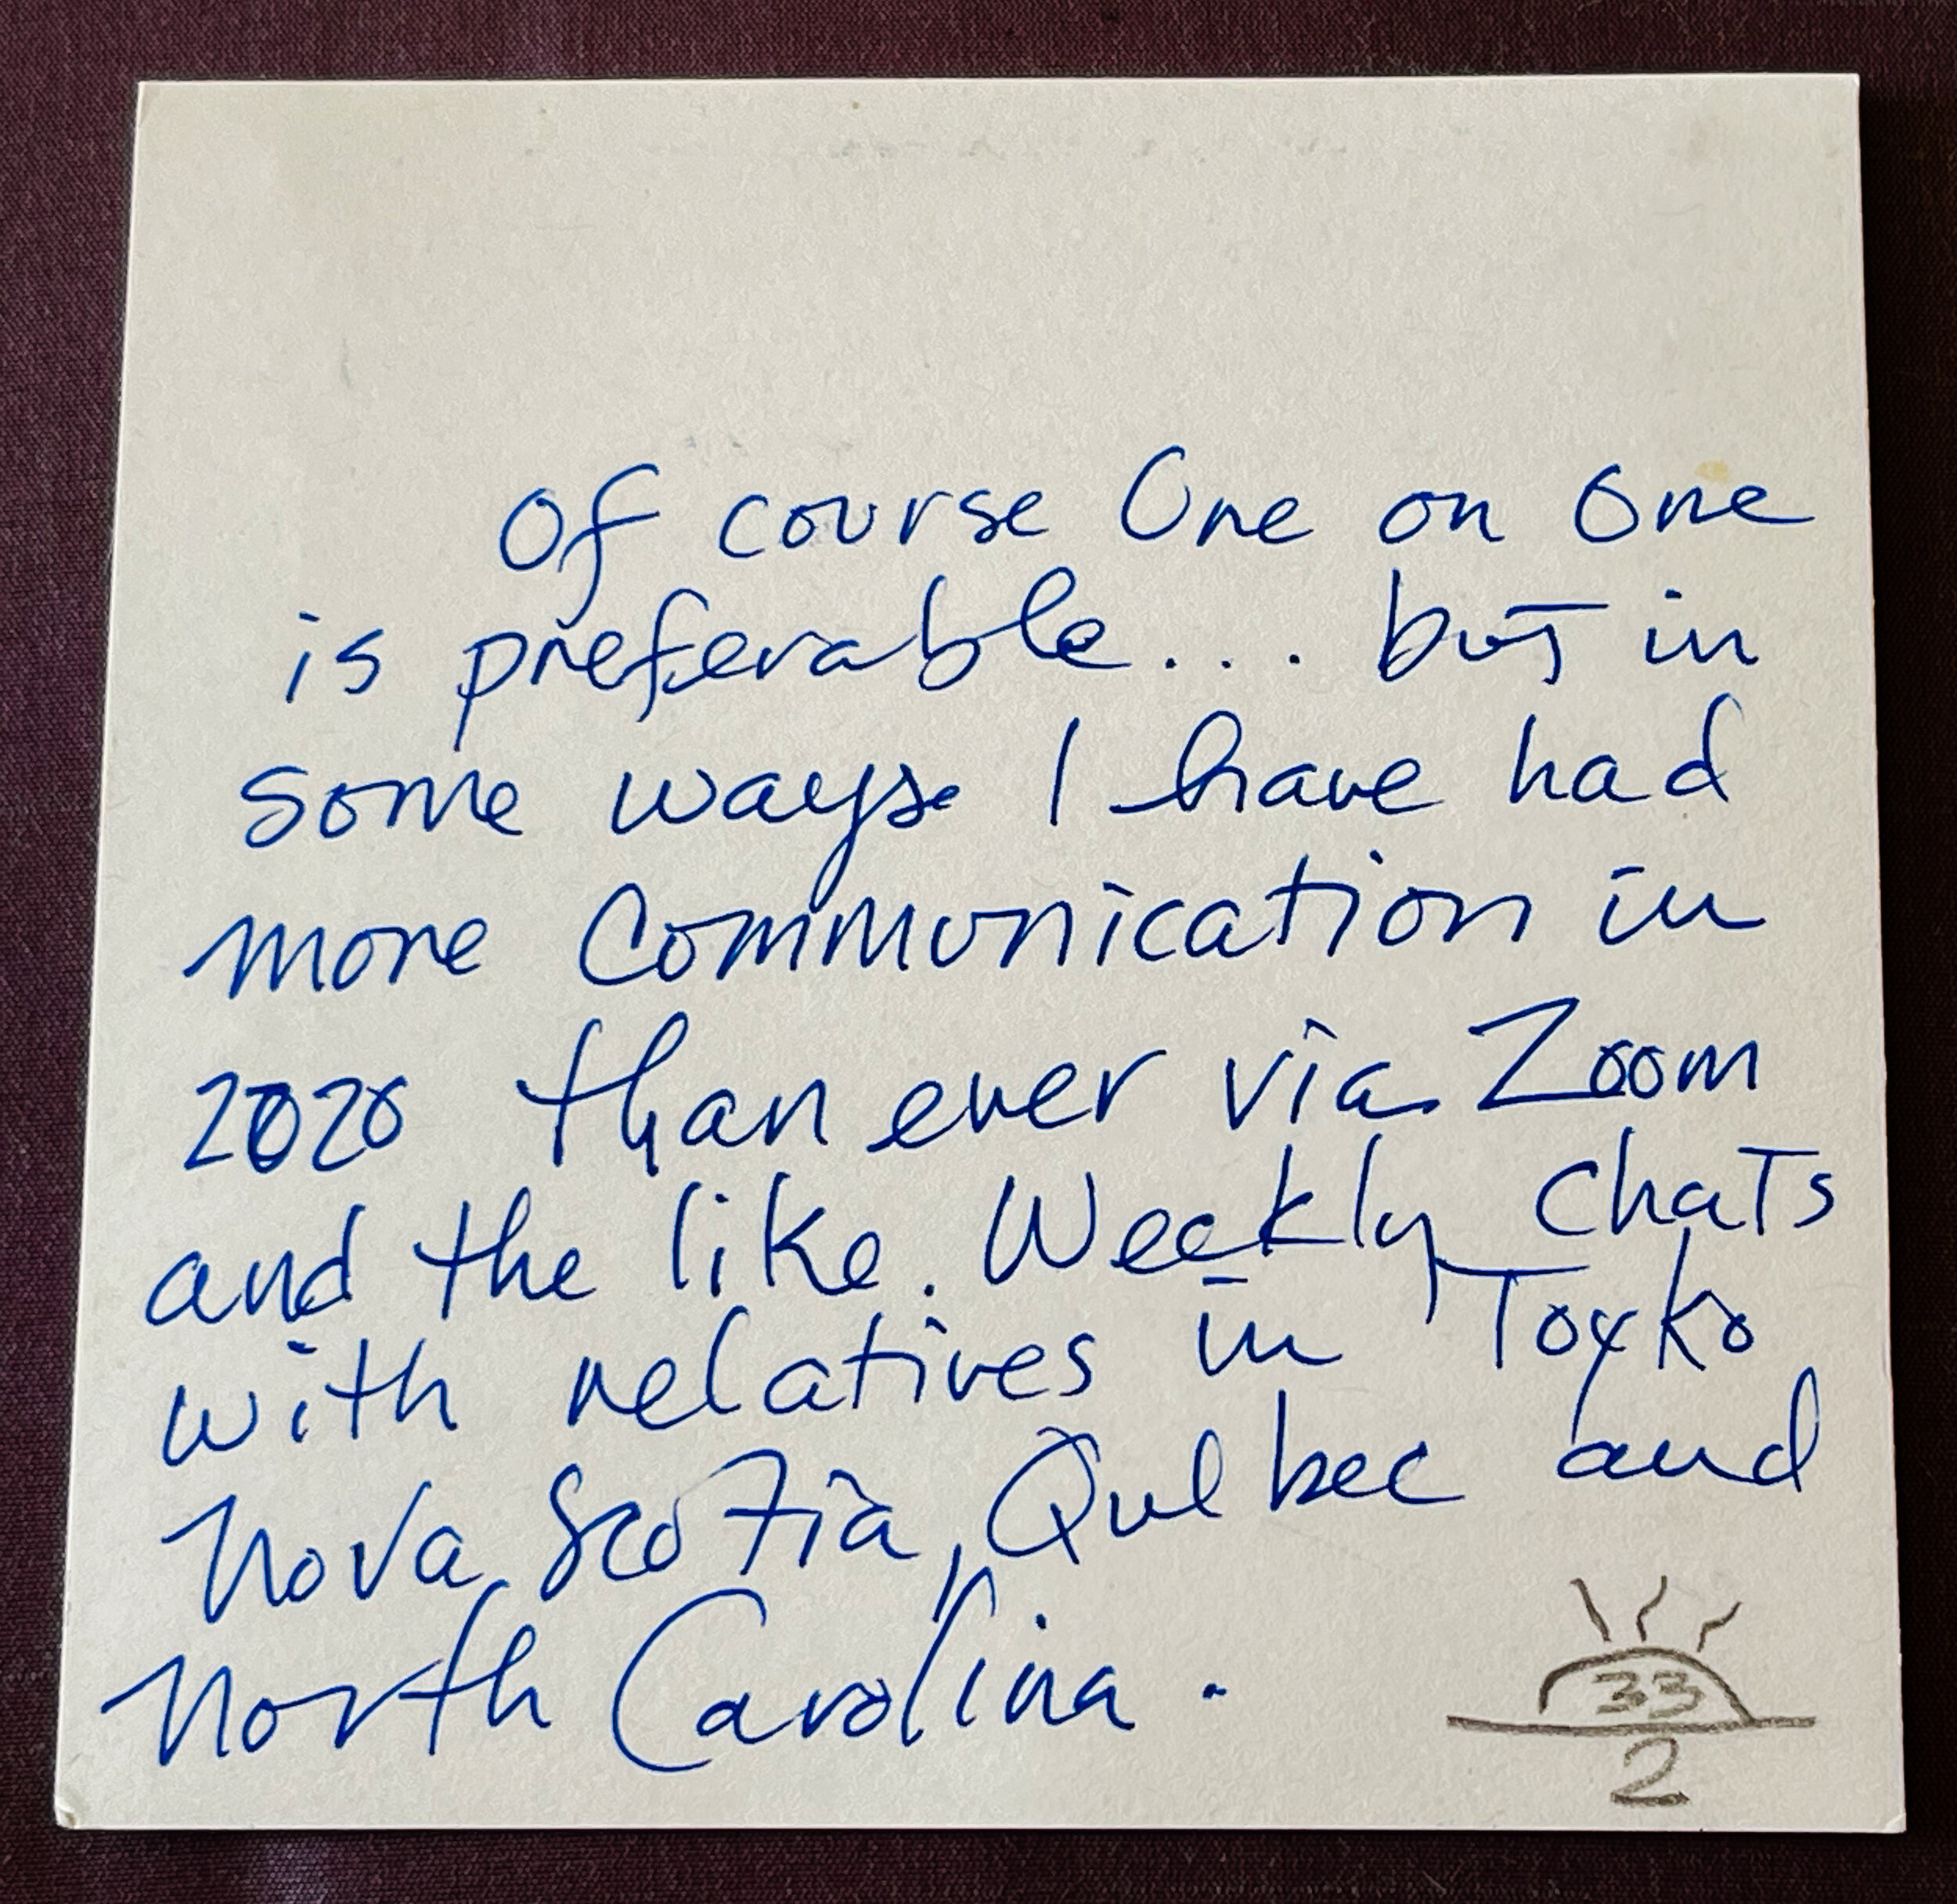 Of course One on One
is preferable... but in
some ways I have had
more Communication in
2020 than ever via Zoom
and the like. Weekly chats
with relatives in Toyko
Nova Scotia, Quebec and
North Carolina.
33
2